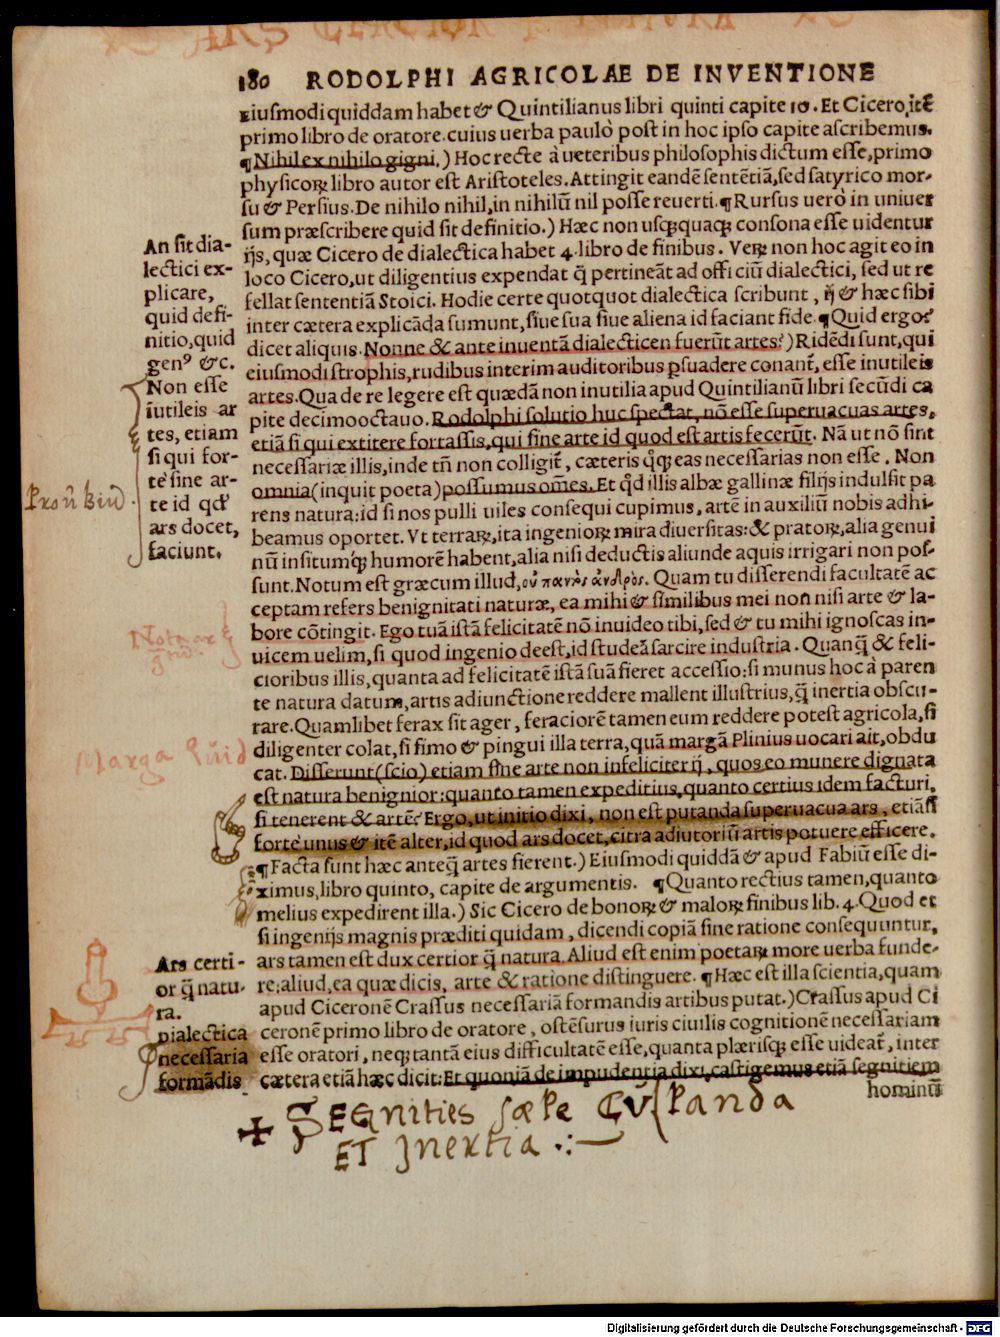 ARS CERCIOR
180 RODOLPHI AGRICOLAE DE INVENTIONE
Eiusmodi quiddam habet & Quintilianus libri quinti capite 10. Et Cicero, itẽ
primo libro de oratore. cuius uerba paulò post in hoc ipso capite ascribemus.
¶ Nihil ex nihilo gigni.) Hoc recte à ueteribus philosophis dictum esse, primo
physicoꝝ libro autor est Aristoteles. Attingit eandẽ sentẽtiã, sed satyrico mor-
su & Persius. De nihilo nihil, in nihilũ nil posse reuerti. ¶ Rursus uerò in uniuer
sum præscribere quid sit definitio.) Hæc non usq;quaq; consona esse uidentur
ijs, quæ Cicero de dialectica habet 4. libro de finibus. Veꝝ non hoc agit eo in
loco Cicero, ut diligentius expendat q̃ pertineãt ad officiũ dialectici, sed ut re
fellat sententiã Stoici. Hodie certe quotquot dialectica scribunt, ij & hæc sibi
inter cætera explicãda sumunt, siue sua siue aliena id faciant fide. ¶ Quid ergo?
dicet aliquis. Nonne & ante inuentã dialecticen fuerũt artes?) Ridẽdi sunt, qui
eiusmodi strophis, rudibus interim auditoribus p̱suadere conant᷑, esse inutileis
artes. Qua de re legere est quædã non inutilia apud Quintilianũ libri secũdi ca
pite decimooctauo. Rodolphi solutio huc spectat, nõ esse superuacuas artes,
etiã si qui extitere fortassis, qui sine arte id quod est artis fecerũt. Nã ut nõ sint
necessariæ illis, inde tñ non colligit᷑, cæteris q̊q; eas necessarias non esse. Non
omnia (inquit poeta) possumus om̃es. Et qd̃ illis albæ gallinæ filijs indulsit pa
rens natura: id si nos pulli uiles consequi cupimus, artẽ in auxiliũ nobis adhi-
beamus oportet. Vt terraꝝ, ita ingenioꝝ mira diuersitas: & pratoꝝ, alia genui
nũ insitumq́; humorẽ habent, alia nisi deductis aliunde aquis irrigari non pos-
sunt. Notum est græcum illud, οὐ παντὸς ἀνδρὸς. Quam tu disserendi facultatẽ ac
ceptam refers benignitati naturæ, ea mihi & similibus mei non nisi arte & la-
bore cõtingit. Ego tuã istã felicitatẽ nõ inuideo tibi, sed & tu mihi ignoscas in-
uicem uelim, si quod ingenio deest, id studeã sarcire industria. Quanq̃ & feli-
cioribus illis, quanta ad felicitatẽ istã suã fieret accessio: si munus hoc à paren
te natura datum, artis adiunctione reddere mallent illustrius, q̃ inertia obscu-
rare. Quamlibet ferax sit ager, feraciorẽ tamen eum reddere potest agricola, si
diligenter colat, si fimo & pingui illa terra, quã margã Plinius uocari ait, obdu
cat. Disserunt (scio) etiam sine arte non infeliciter ij, quos eo munere dignata
est natura benignior: quanto tamen expeditius, quanto certius idem facturi,
si tenerent & artẽ? Ergo, ut initio dixi, non est putanda superuacua ars, etiãsi
fortè unus & itẽ alter, id quod ars docet, citra adiutoriũ artis potuere efficere.
¶ Facta sunt hæc anteq̃ artes fierent.) Eiusmodi quiddã & apud Fabiũ esse di-
ximus, libro quinto, capite de argumentis. ¶ Quanto rectius tamen, quanto
melius expedirent illa.) Sic Cicero de bonoꝝ & maloꝝ finibus lib. 4. Quod et
si ingenijs magnis præditi quidam, dicendi copiã sine ratione consequuntur,
ars tamen est dux certior q̃ natura. Aliud est enim poetaꝝ more uerba funde-
re: aliud, ea quæ dicis, arte & ratione distinguere. ¶ Hæc est illa scientia, quam
apud Ciceronẽ Crassus necessariã formandis artibus putat.) Crassus apud Ci
ceronẽ primo libro de oratore, ostẽsurus iuris ciuilis cognitionẽ necessariam
esse oratori, neq; tantã eius difficultatẽ esse, quanta plærisq; esse uideat᷑, inter
cætera etiã hæc dicit: Et quoniã de impudentia dixi, castigemus etiã segnitiem
hominũ
An sit dia-
lectici ex-
plicare,
quid defi-
nitio, quid
genꝰ &c.
Non esse
īutileis ar
tes, etiam
si qui for-
tè sine ar-
te id qd̃
ars docet,
faciunt.
Marga Quid
Ars certi-
or q̃ natu-
ra.
Dialectica
necessaria
formãdis
SEGnities sæPe CULPanda
ET Inertia
Digitalisierung gefördert durch die Deutsche Forschungsgemeinschaft - DFG